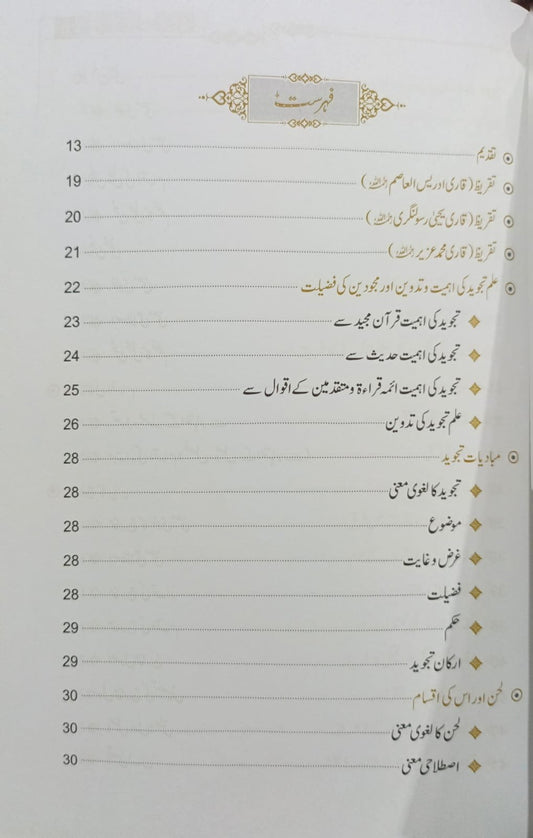 فہرست
تقدیم 13
تقریظ (قاری ادریس العاصم رحمہ اللہ) 19
تقریظ (قاری یحیٰی رسولنگری رحمہ اللہ) 20
تقریظ (قاری محمد عزیر رحمہ اللہ) 21
علم تجوید کی اہمیت و تدوین اور مجودین کی فضیلت 22
تجوید کی اہمیت قرآن مجید سے 23
تجوید کی اہمیت حدیث سے 24
تجوید کی اہمیت ائمہ قراءۃ و متقدمین کے اقوال سے 25
علم تجوید کی تدوین 26
مبادیات تجوید 28
تجوید کا لغوی معنی 28
موضوع 28
غرض و غایت 28
فضیلت 28
حکم 29
ارکان تجوید 29
لحن اور اس کی اقسام 30
لحن کا لغوی معنی 30
اصطلاحی معنی 30